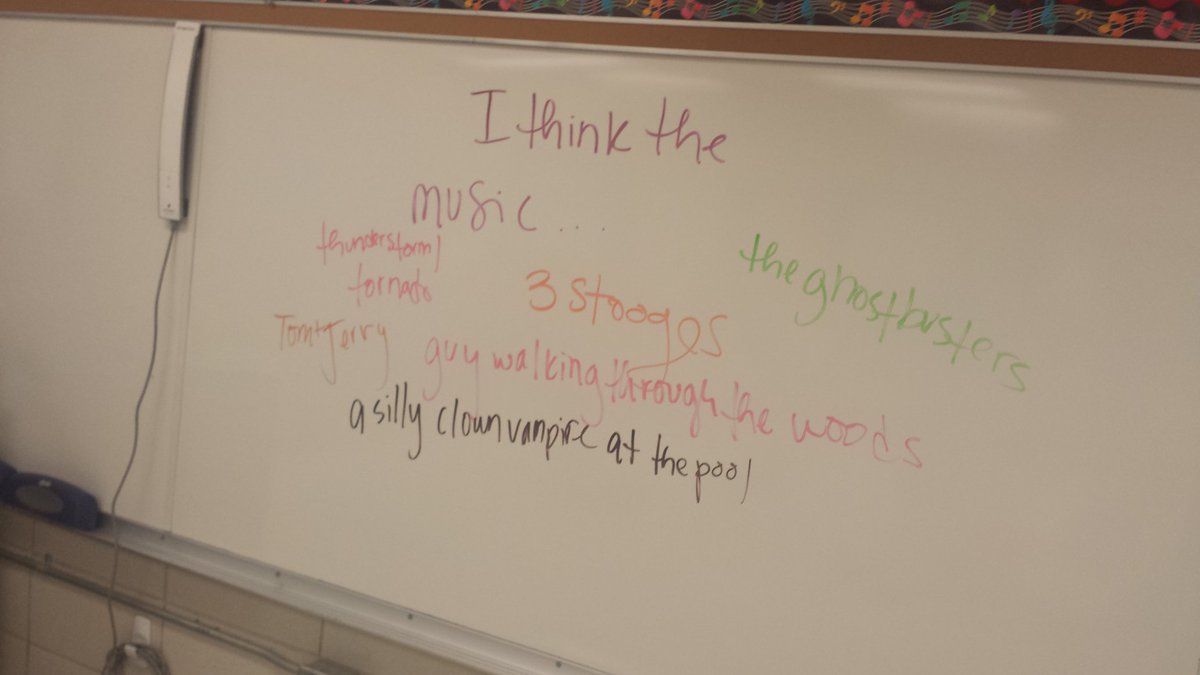 I think the
music...
thunderstorm/
tornado
3 Stooges
the ghostbusters
Tom+Jerry
guy walking through the woods
a silly clown vampire at the pool